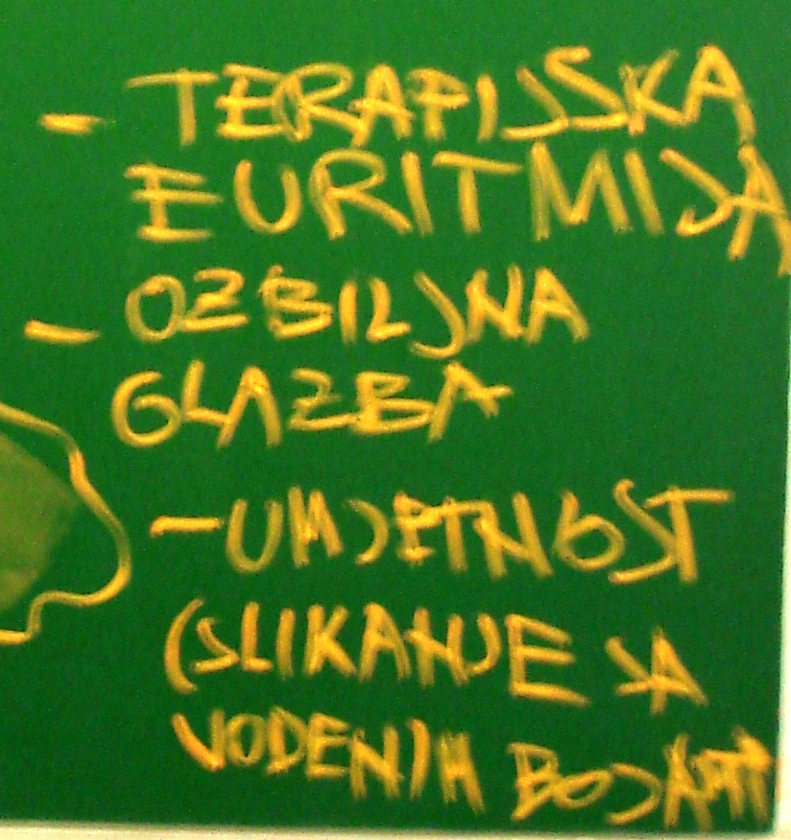 - TERAPIJSKA
EURITMIJA
- OZBILJNA
GLAZBA
- UMJETNOST
(SLIKANJE SA
VODENIM BOJAMA